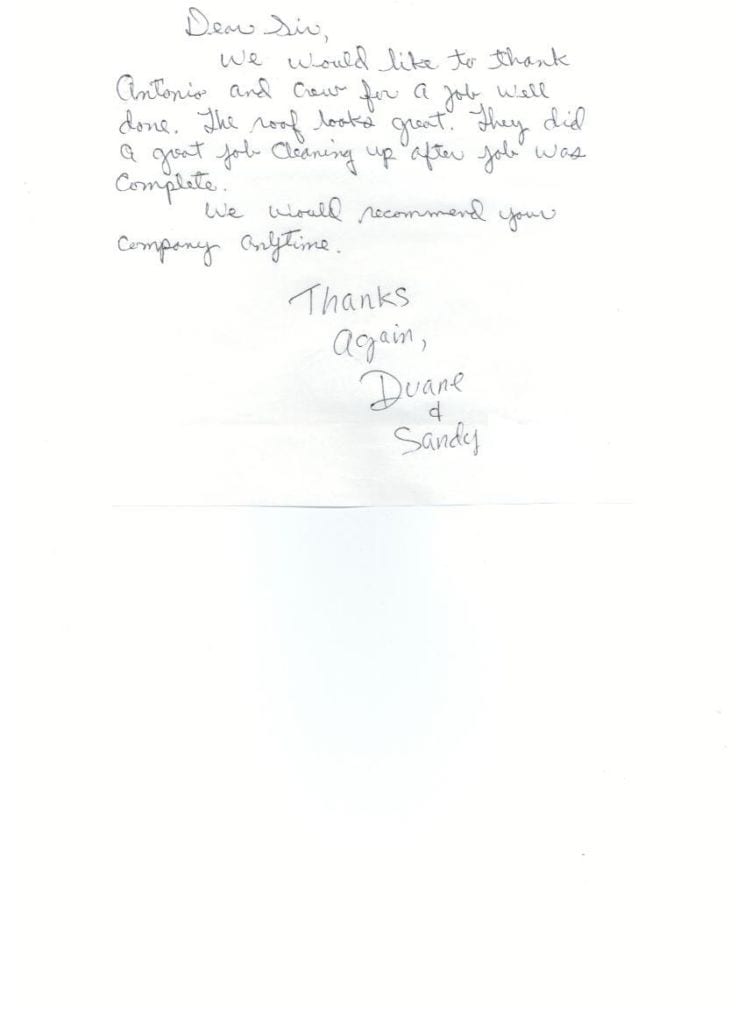 Dear Sir,
We would like to thank
Antonio and Crew for a job well
done. The roof looks great. They did
a great job Cleaning up after job was
Complete.
We would recommend your
Company anytime.
Thanks
Again,
Duane
&
Sandy